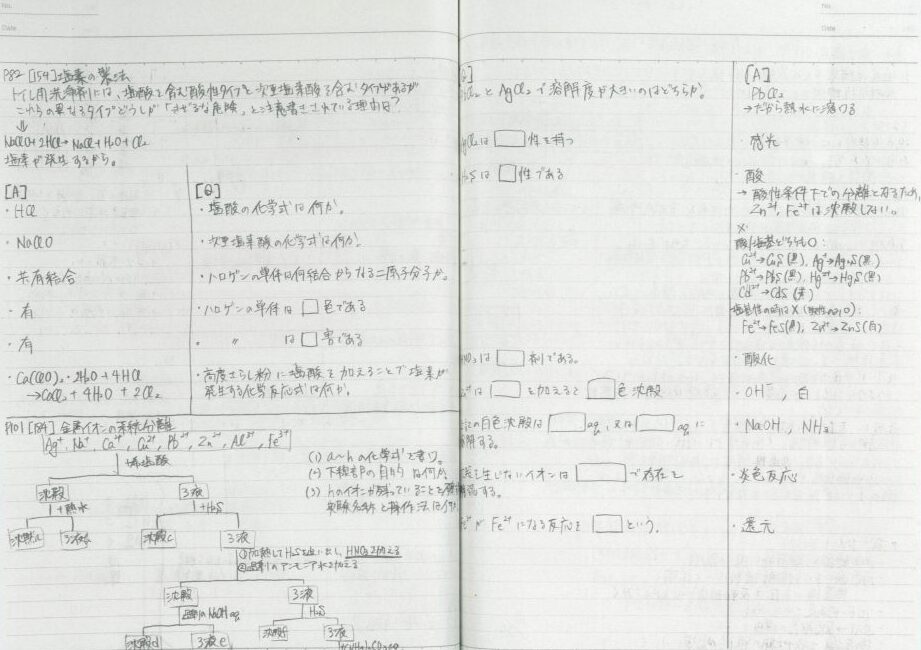 No.
Date
P82 [154] 塩素の製法
トイレ用洗浄剤には、塩酸を含む酸性タイプと次亜塩素酸を含むタイプがあるが
これらの異なるタイプどうしが「まぜるな危険」と注意書きされている理由は?
⇓
NaClO+2HCl→NaCl+H₂O+Cl₂
塩素が発生するから。
[A]
[Q]
・HCl
・塩酸の化学式は何か。
・NaClO
・次亜塩素酸の化学式は何か。
・共有結合
・ハロゲンの単体は何結合からなる二原子分子か。
・有
・ハロゲンの単体は□色である
・有
・ 〃 は□害である
・Ca(ClO)₂・2H₂O + 4HCl
→CaCl₂ + 4H₂O + 2Cl₂
・高度さらし粉に塩酸を加えることで塩素が
発生する化学反応式は何か。
P101 [184] 金属イオンの系統分離
Ag⁺, Na⁺, Ca²⁺, Cu²⁺, Pb²⁺, Zn²⁺, Al³⁺, Fe³⁺
希塩酸
(1) a~hの化学式を書け。
(2) 下線部の目的は何か。
(3) hのイオンが残っていることを
実験名称と操作法は何か
沈殿
ろ液
+熱水
+H₂S
沈殿a
ろ液b
沈殿c
ろ液
①加熱してH₂Sを追い出し、HNO₃を加える
②過剰のアンモニア水を加える
沈殿
ろ液
過剰のNaOH aq
H₂S
沈殿d
ろ液e
沈殿f
ろ液
(NH₄)₂CO₃ aq
No.
Date
[A]
PbCl₂とAgCl₂で溶解度が大きいのはどちらか。
PbCl₂
→だから熱水に溶ける
AgCl₂は□性を持つ
・感光
H₂Sは□性である
・酸
→酸性条件下での分離となるため、
Zn²⁺, Fe²⁺は沈殿しない。
※
酸/塩基どちらも○:
Cu²⁺→CuS(黒), Ag⁺→Ag₂S(黒)
Pb²⁺→PbS(黒), Hg²⁺→HgS(黒)
Cd²⁺→CdS(黄)
Fe²⁺→FeS(黒), Zn²⁺→ZnS(白)
HNO₃は□剤である。
・酸化
は□を加えると□色沈殿
・OH⁻, 白
の白色沈殿は□aq, 又は□aqに
溶解する。
・NaOH NH₃
沈殿を生じないイオンは□で存在を
確認する。
・炎色反応
が Fe²⁺になる反応を□という。
・還元